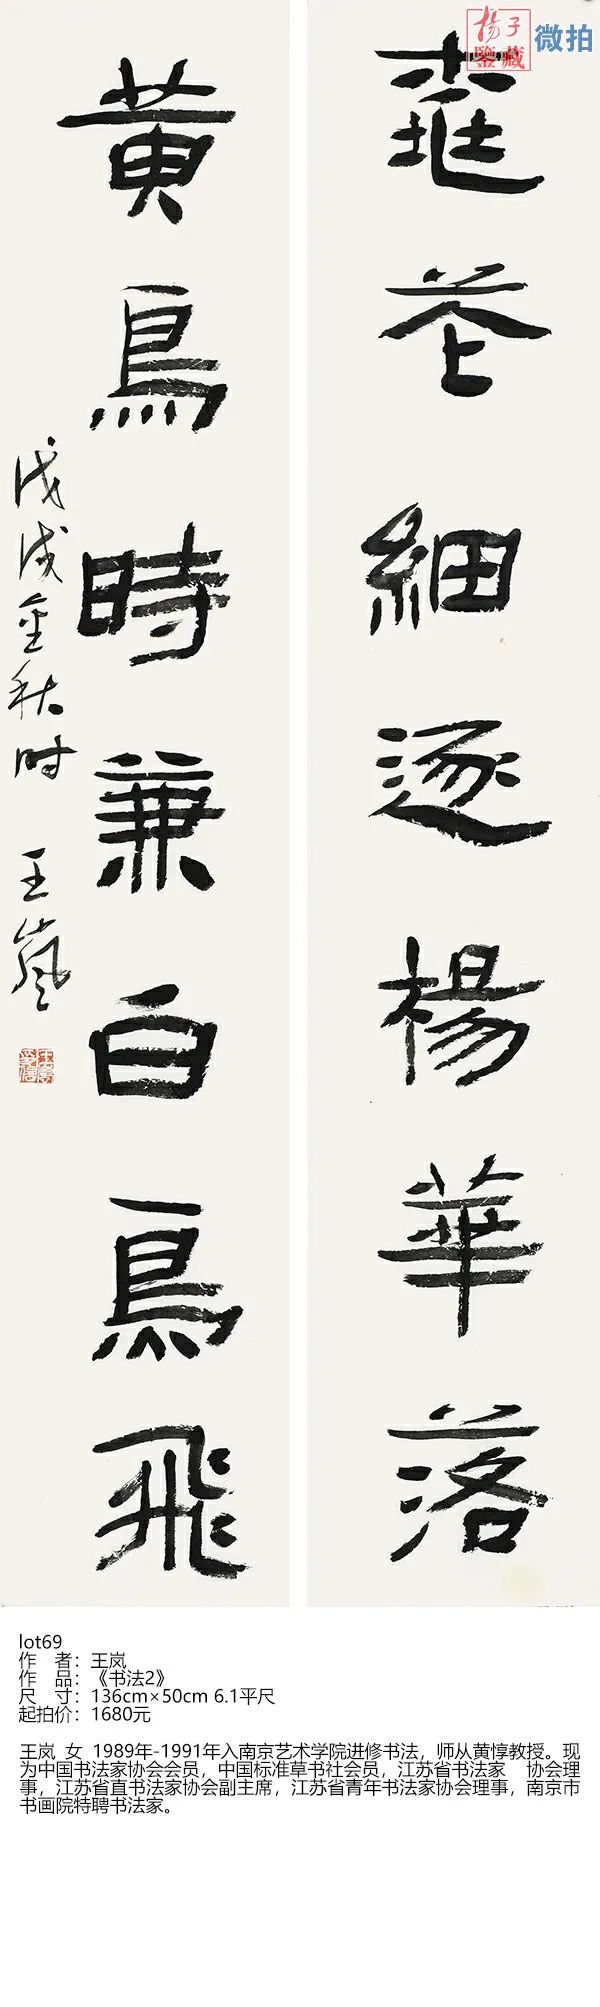 扬子
鑒藏
微拍
桃花細逐楊華落
黃鳥時兼白鳥飛
戊戌金秋时 王嵐
lot69
作 者：王岚
作 品：《书法2》
尺 寸：136cm×50cm 6.1平尺
起拍价：1680元
王岚 女 1989年-1991年入南京艺术学院进修书法，师从黄惇教授。现
为中国书法家协会会员，中国标准草书社会员，江苏省书法家 协会理
事，江苏省直书法家协会副主席，江苏省青年书法家协会理事，南京市
书画院特聘书法家。